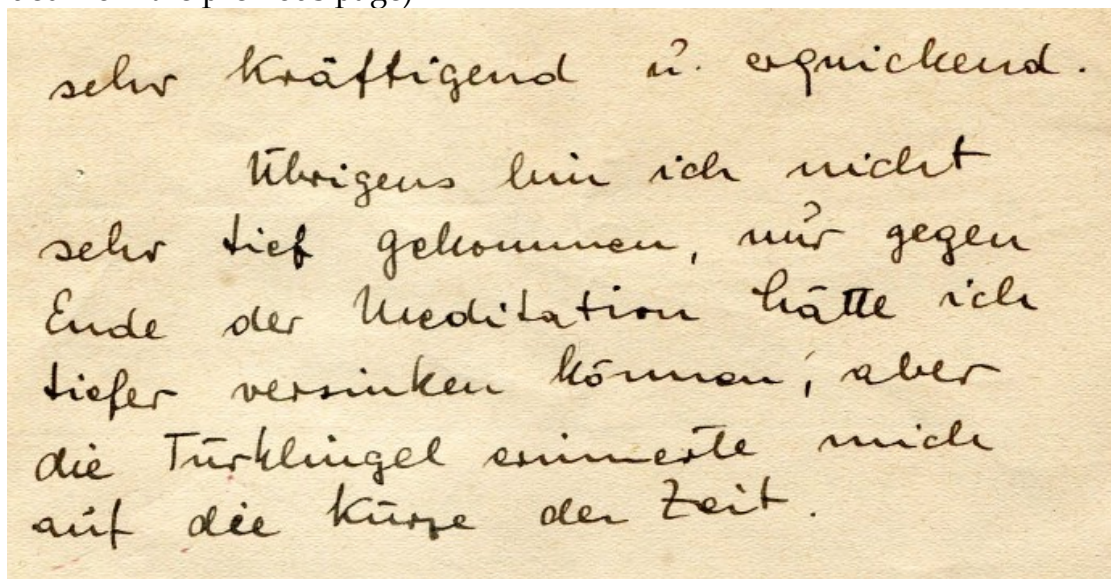 sehr kräftigend u. erquickend.
Übrigens bin ich nicht
sehr tief gekommen, nur gegen
Ende der Meditation hätte ich
tiefer versinken können, aber
die Türklingel erinnerte mich
auf die Kürze der Zeit.